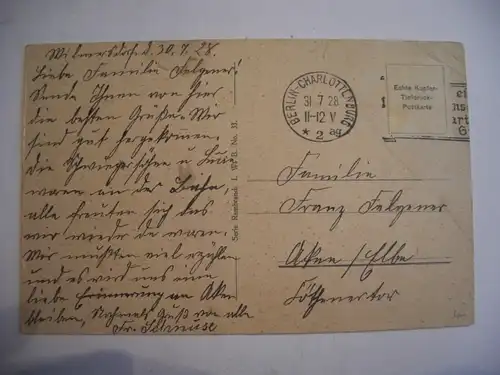 Wilmersdorf d. 30.7.28.
Liebe Familie Felgener!
Sende Ihnen von hier
die besten Grüße. Wir
sind gut hergekommen.
die Schwiegersöhne u.
waren an der Bahn,
alle freuten sich das
wir wieder da waren.
Wir mußten viel erzählen
und es wird uns eine
liebe Erinnerung an Aken
bleiben, Nochmals Gruß von alle
Fr.
Serie Rembrandt I. W. B. No. 33.
BERLIN-CHARLOTTENBURG
31.7.28
11-12 V
* 2 ag
Echte Kupfer-
Tiefdruck-
Postkarte
Familie
Franz Felgener
Aken /Elbe
Köthenertor